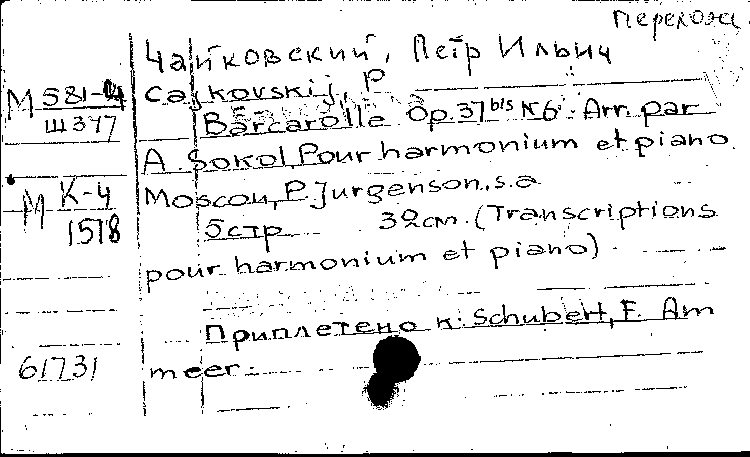 перелож
Чайковский, Петр Ильич
М 581-4
Ш 377
Cajkovskij, P
Barcarolle Op.37 bis N6. Arr. par
A. Sokol. Pour harmonium et piano.
М К-4
1518
Moscou, P. Jurgenson, s.a
5стр 32см. (Transcriptions
pour harmonium et piano)
Приплетено к: Schubert, F. Am
61731
meer.